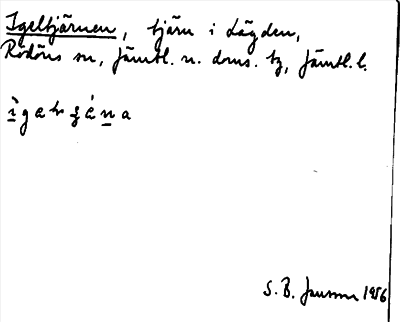 Igeltjärnen, tjärn i Lägden,
Rödöns sn, Jämtl. n. doms. tg, Jämtl. l.
S. B. Jansson 1956